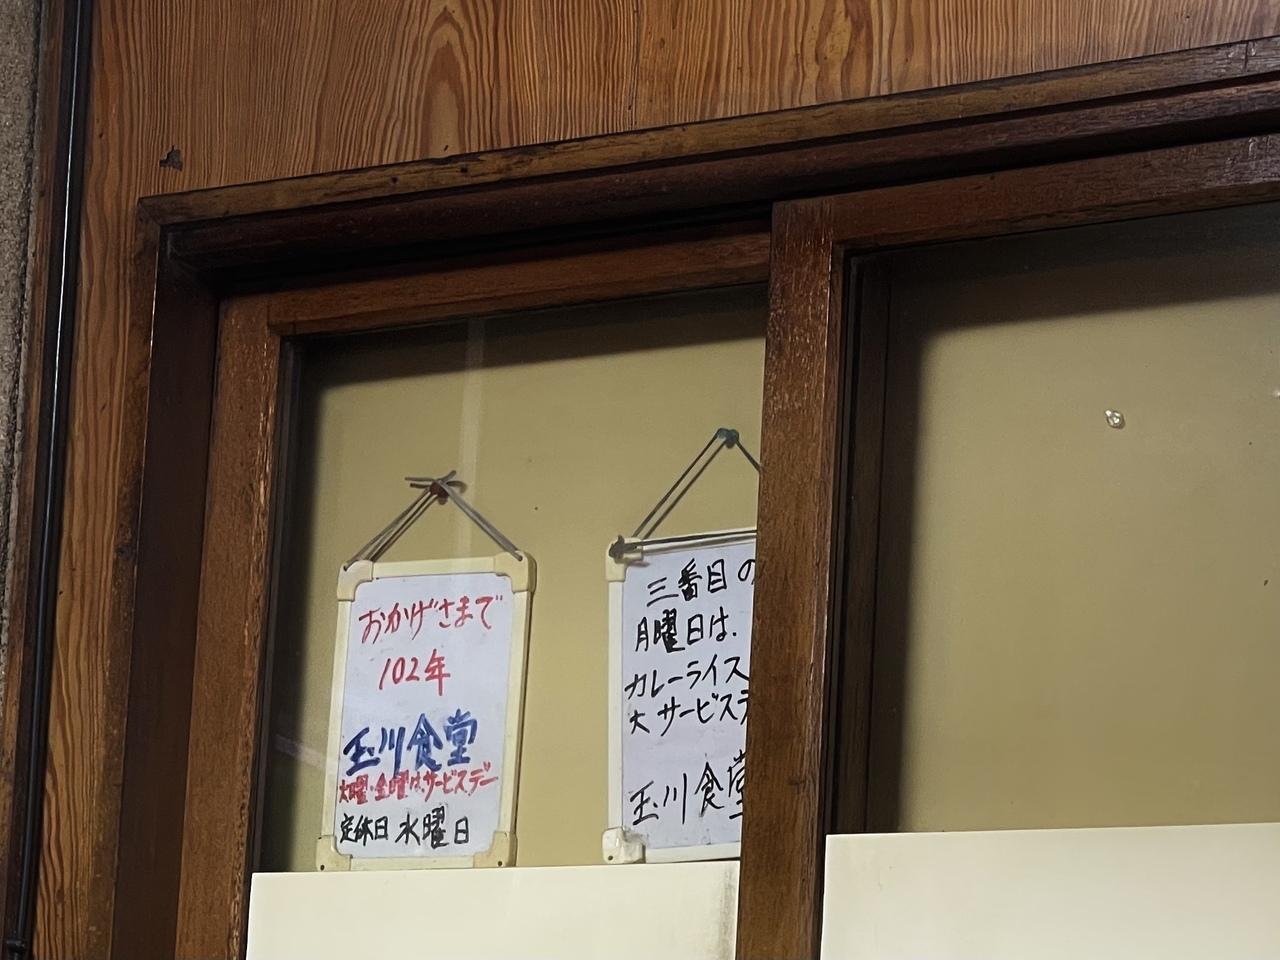 おかげさまで
102年
玉川食堂
火曜・金曜はサービスデー
定休日 水曜日
三番目の
月曜日は、
カレーライス
大サービスデ
玉川食堂